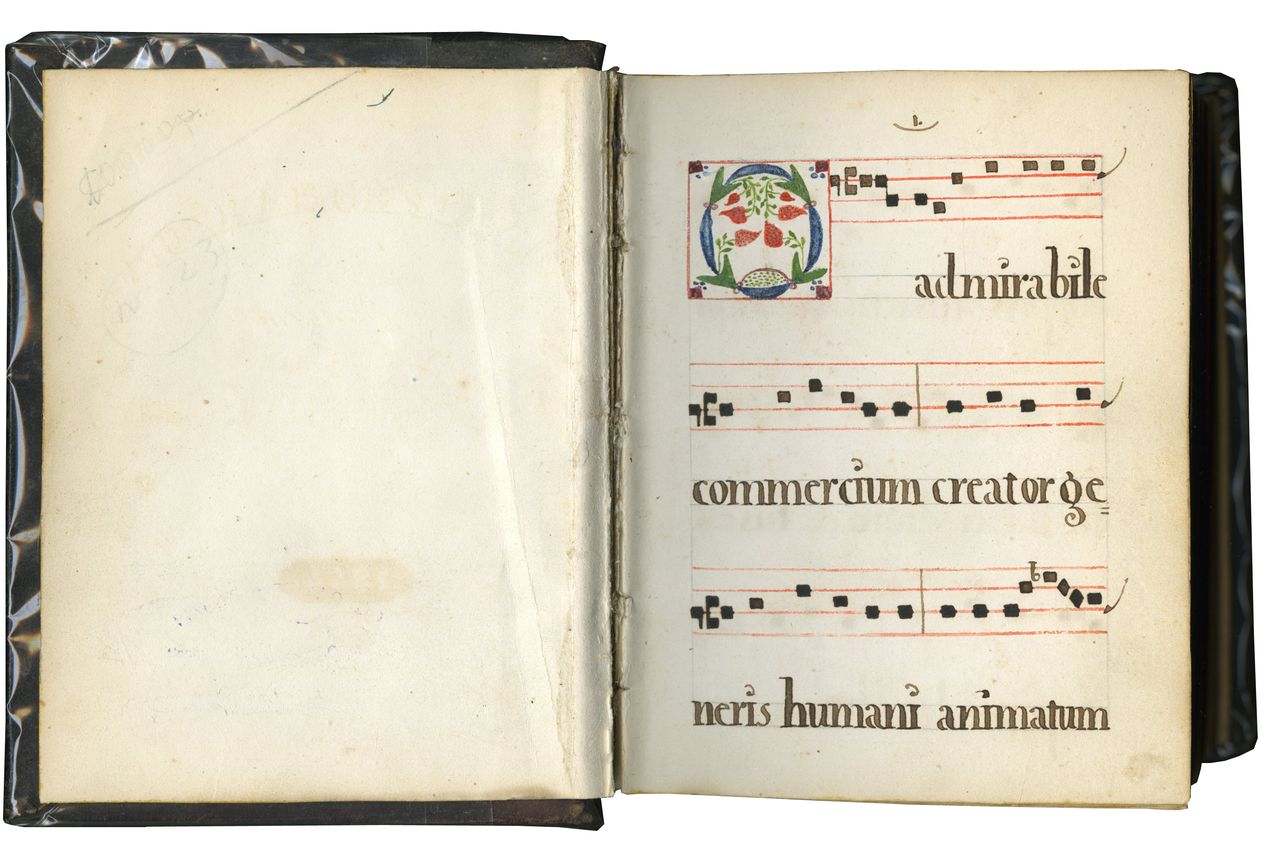 1.
O admirabile
commercium creator ge
neris humani animatum